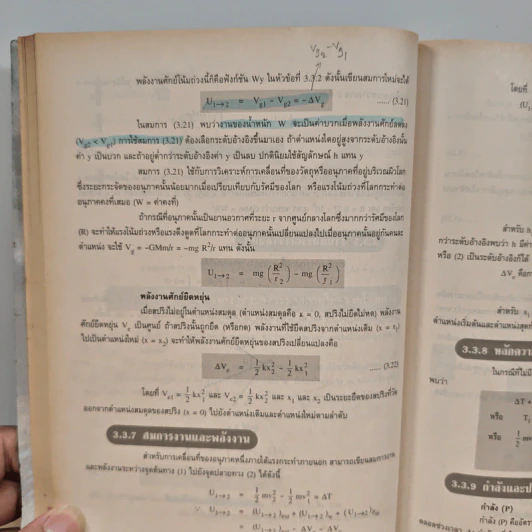 Vg2 - Vg1
พลังงานศักย์โน้มถ่วงนี้ก็คือฟังก์ชัน Wy ในหัวข้อที่ 3.3.2 ดังนั้นเขียนสมการใหม่จะได้
U1→2 = Vg1 - Vg2 = -ΔVg ...... (3.21)
ในสมการ (3.21) พบว่างานของน้ำหนัก W จะเป็นค่าบวกเมื่อพลังงานศักย์ลดลง
(Vg2 < Vg1) การใช้สมการ (3.21) ต้องเลือกระดับอ้างอิงขึ้นมาเอง ถ้าตำแหน่งใดอยู่สูงจากระดับอ้างอิงนั้น
ค่า y เป็นบวก และถ้าอยู่ต่ำกว่าระดับอ้างอิงค่า y เป็นลบ ปกตินิยมใช้สัญลักษณ์ h แทน y
สมการ (3.21) ใช้กับการวิเคราะห์การเคลื่อนที่ของวัตถุหรืออนุภาคที่อยู่บริเวณผิวโลก
ซึ่งระยะกระจัดของอนุภาคนั้นน้อยมากเมื่อเปรียบเทียบกับรัศมีของโลก หรือแรงโน้มถ่วงที่โลกกระทำต่อ
อนุภาคคงที่เสมอ (W = ค่าคงที่)
ถ้ากรณีที่อนุภาคนั้นเป็นยานอวกาศที่ระยะ r จากศูนย์กลางโลกซึ่งมากกว่ารัศมีของโลก
(R) จะทำให้แรงโน้มถ่วงหรือแรงดึงดูดที่โลกกระทำต่ออนุภาคนั้นเปลี่ยนแปลงไปเมื่ออนุภาคนั้นอยู่กันคนละ
ตำแหน่ง จะใช้ Vg = -GMm/r = -mg R²/r แทน ดังนั้น
U1→2 = mg (R²/r2) - mg (R²/r1)
พลังงานศักย์ยืดหยุ่น
เมื่อสปริงไม่อยู่ในตำแหน่งสมดุล (ตำแหน่งสมดุลคือ x = 0, สปริงไม่ยืดไม่หด) พลังงาน
ศักย์ยืดหยุ่น Ve เป็นศูนย์ ถ้าสปริงนั้นถูกยืด (หรือกด) พลังงานที่ใช้ยืดสปริงจากตำแหน่งเดิม (x = x1)
ไปเป็นตำแหน่งใหม่ (x = x2) จะทำให้พลังงานศักย์ยืดหยุ่นของสปริงเปลี่ยนแปลงคือ
ΔVe = 1/2 kx2² - 1/2 kx1² ...... (3.22)
โดยที่ Ve1 = 1/2 kx1² และ Ve2 = 1/2 kx2² และ x1 และ x2 เป็นระยะยืดของสปริงที่วัด
ออกจากตำแหน่งสมดุลของสปริง (x = 0) ไปยังตำแหน่งเดิมและตำแหน่งใหม่ตามลำดับ
3.3.7 สมการงานและพลังงาน
สำหรับการเคลื่อนที่ของอนุภาคหนึ่งภายใต้แรงกระทำภายนอก สามารถเขียนสมการงาน
และพลังงานระหว่างจุดต้นทาง (1) ไปยังจุดปลายทาง (2) ได้ดังนี้
U1→2 = 1/2 mv2² - 1/2 mv1² = ΔT
โดยที่
(U1
สำหรับ h
กว่าระดับอ้างอิงพบว่า h มีค่า
หรือ (2) เป็นระดับอ้างอิงก็ได้
ΔVg คือก
สำหรับ x1
ตำแหน่งเริ่มต้นและตำแหน่งสุดท้
3.3.8 หลักควา
ในกรณีที่ไม่มี
พบว่า
ΔT +
หรือ T1
หรือ 1/2 m
3.3.9 กำลังและป
กำลัง (P)
กำลัง (P) คืออัตรา